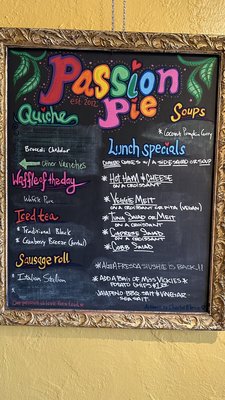 Passion
est. 2012
Pie
Quiche
Broccoli Cheddar
Other Varieties
Waffle of the day
Iced tea
* Traditional Black
* Cranberry Breeze (herbal)
Sausage roll
* Italian
Soups
* Coconut Pumpkin Curry
Lunch specials
COMBO COMES W/ A SIDE SALAD OR SOUP
* HOT HAM & CHEESE
ON A CROISSANT
* VEGGIE MELT
ON A CROISSANT OR PITA (VEGAN)
* TUNA SALAD OR MELT
ON A CROISSANT
* CAPRESE SALAD
ON A CROISSANT
* COBB SALAD
IS BACK!!
* ADD A BAG OF MISS VICKIE'S
POTATO CHIPS
JALAPENO, BBQ, SALT & VINEGAR
SEA SALT